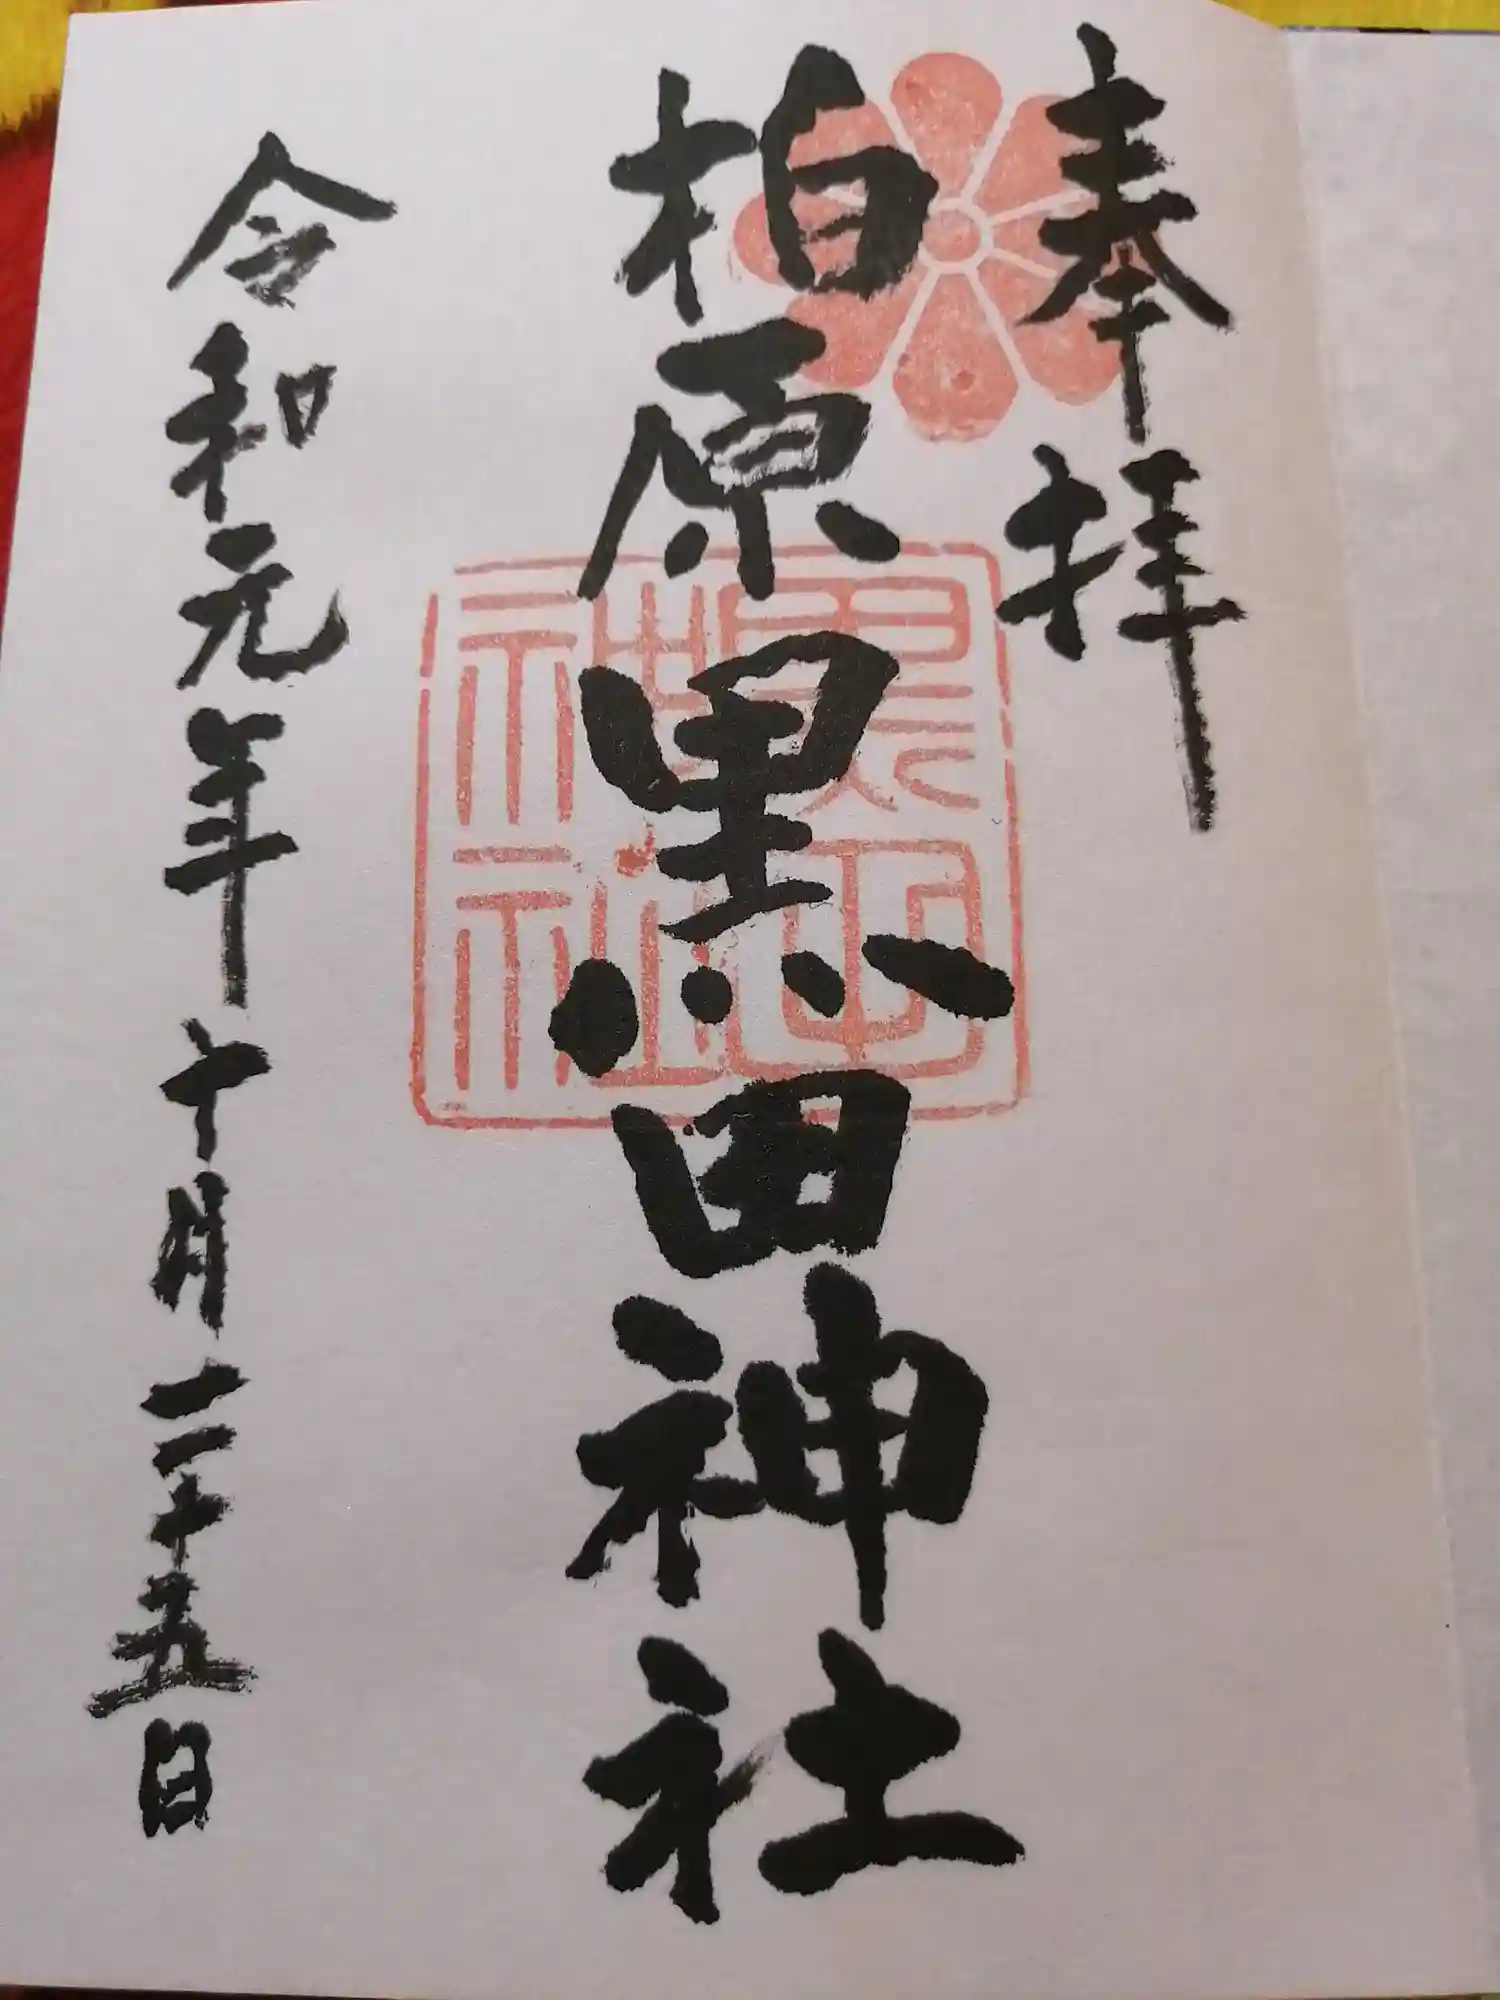 奉拝
柏原黒田神社
黒田神社
令和元年十月二十五日